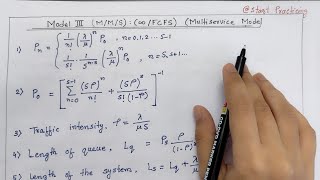 @start Practicing
Model III (M/M/S) : (∞/FCFS) (Multiservice Model
1) Pn = { 1/n! (λ/μ)^n P0 , n=0,1,2... S-1
1/S! · 1/S^(n-s) (λ/μ)^n P0 , n=S,S+1...
2) P0 = [ Σ_{n=0}^{S-1} (Sρ)^n/n! + (Sρ)^S/S!(1-ρ) ]^-1
3) Traffic intensity, ρ = λ/μS
4) Length of queue, Lq = Ps ρ/(1-ρ)
5) Length of the system, Ls = Lq + λ/μ